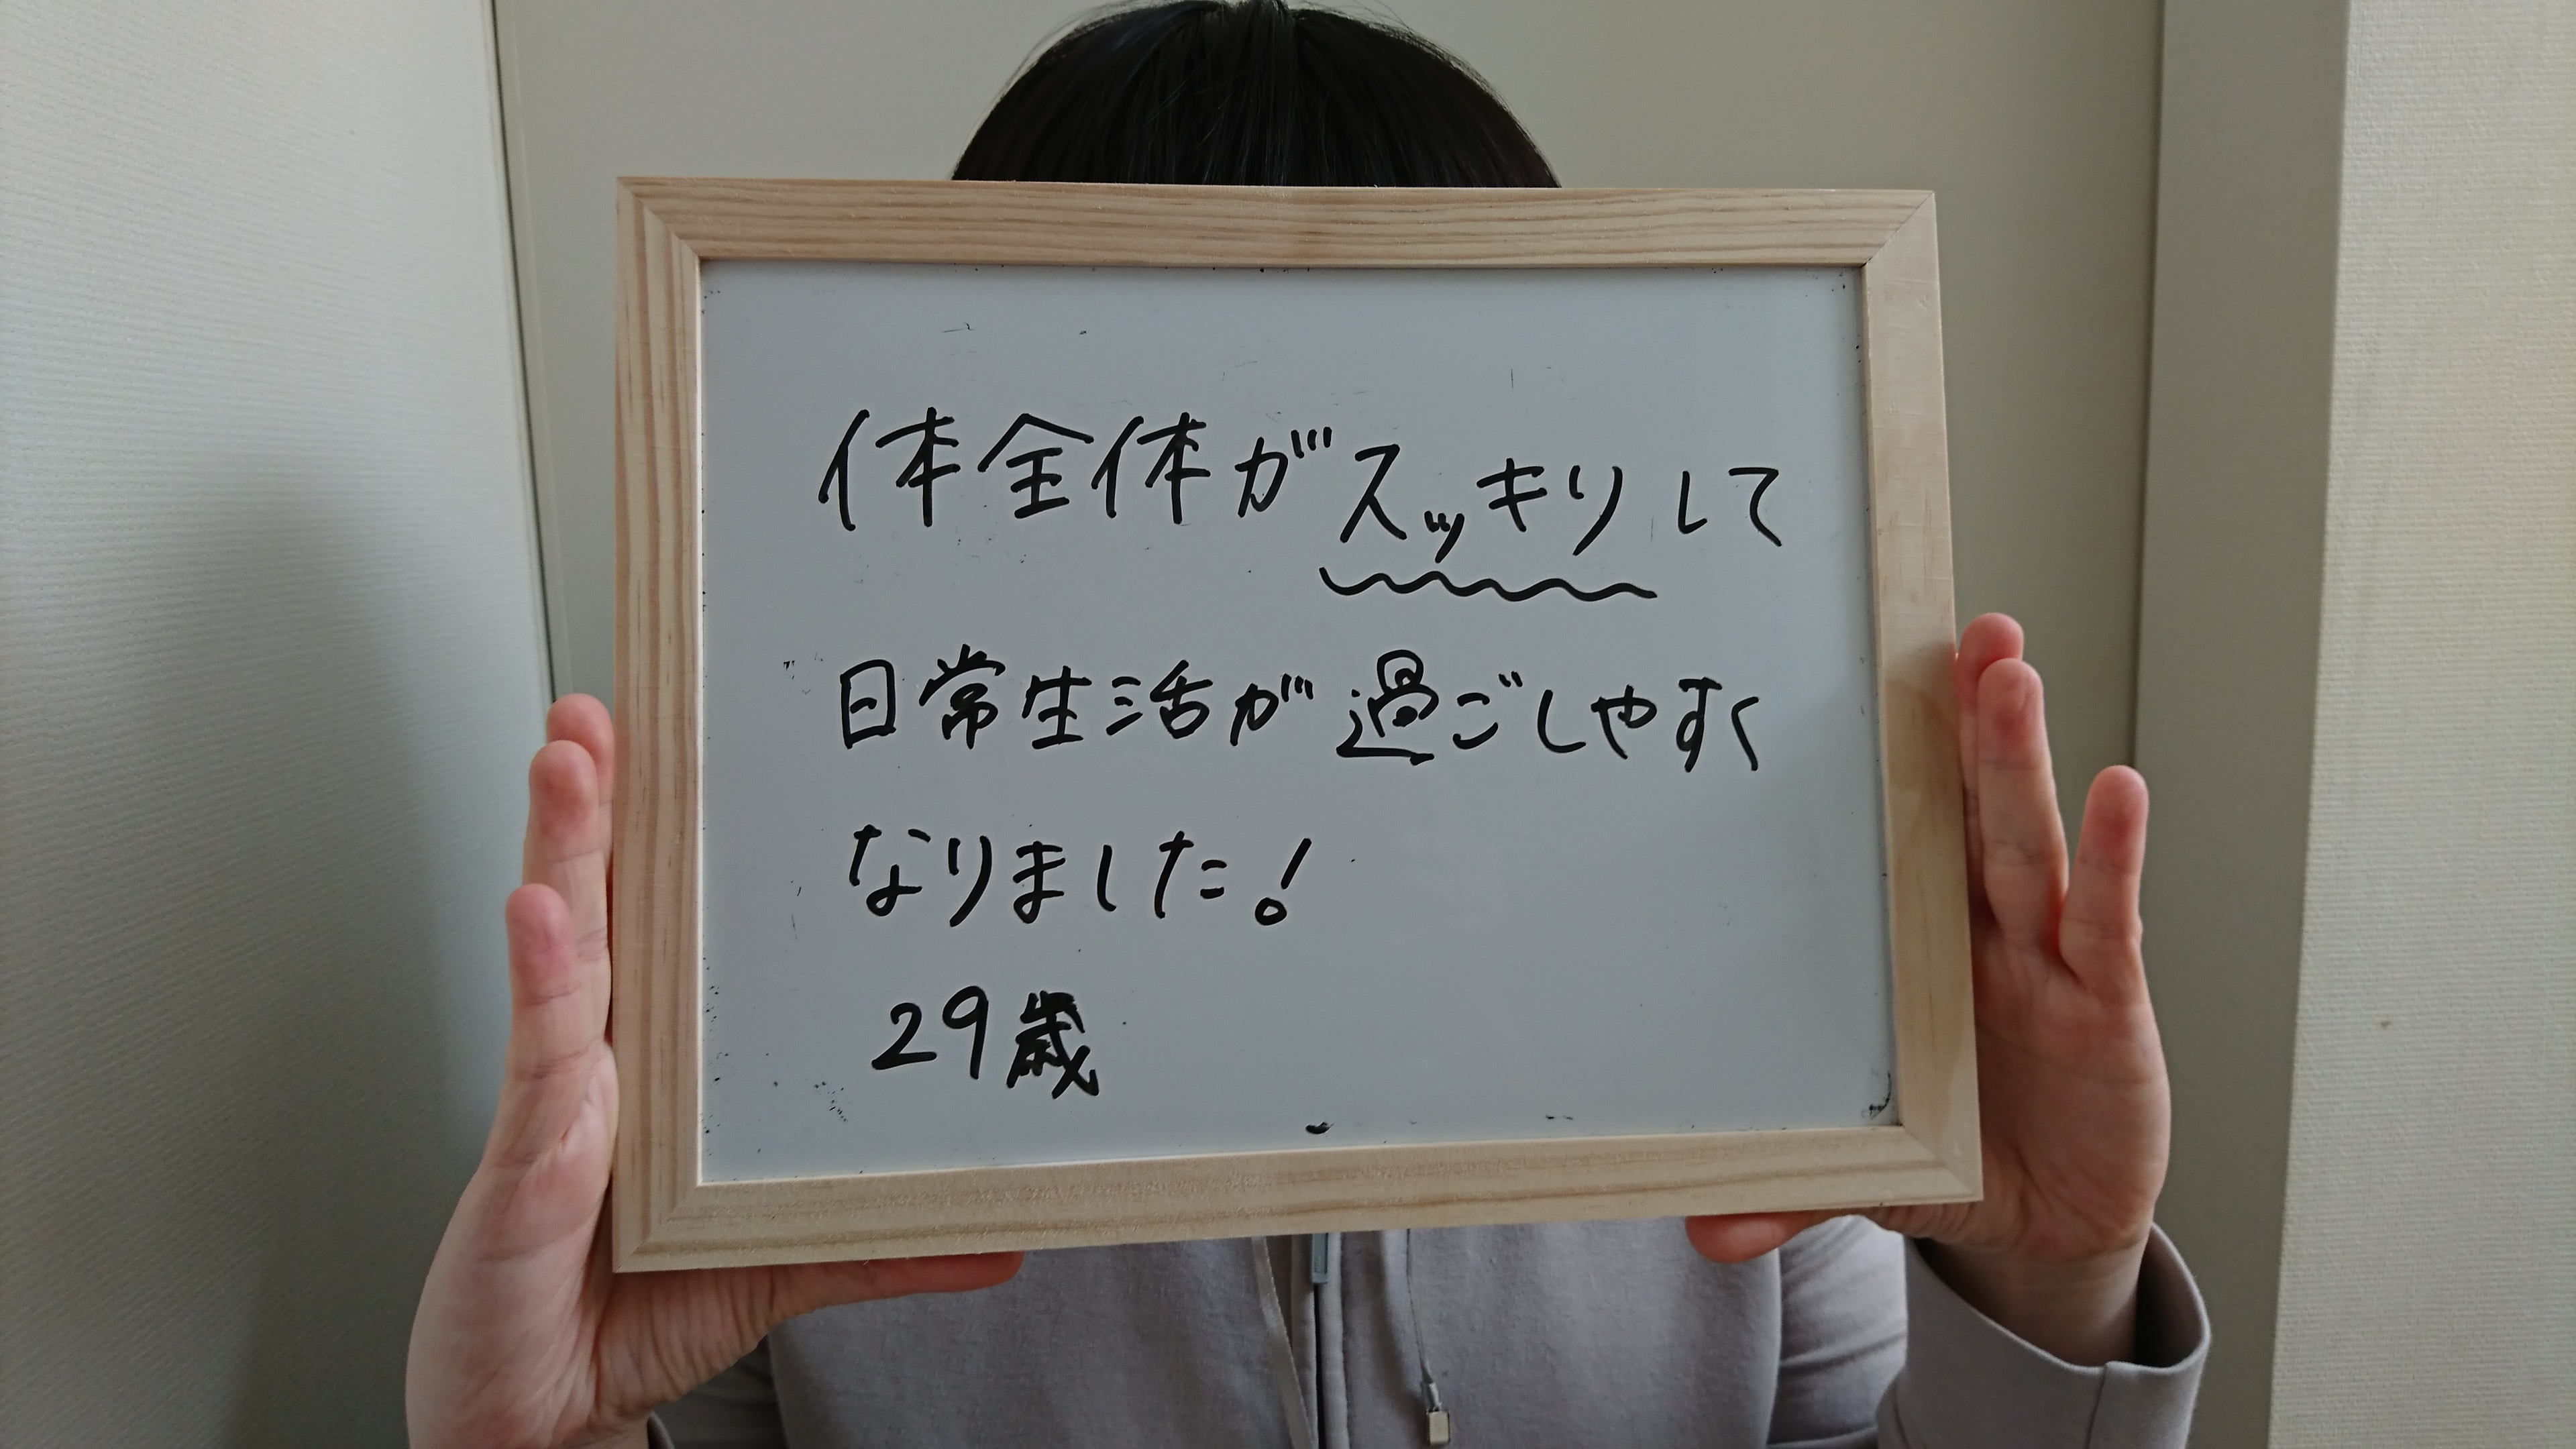 体全体がスッキリして
日常生活が過ごしやすく
なりました!
29歳